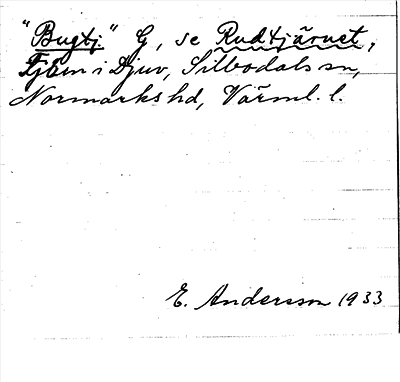 "Bugtj." G, se Rudtjärnet,
Tjärn i Djuv, Silbodals sn,
Normarks hd, Värml. l.
E. Andersson 1933